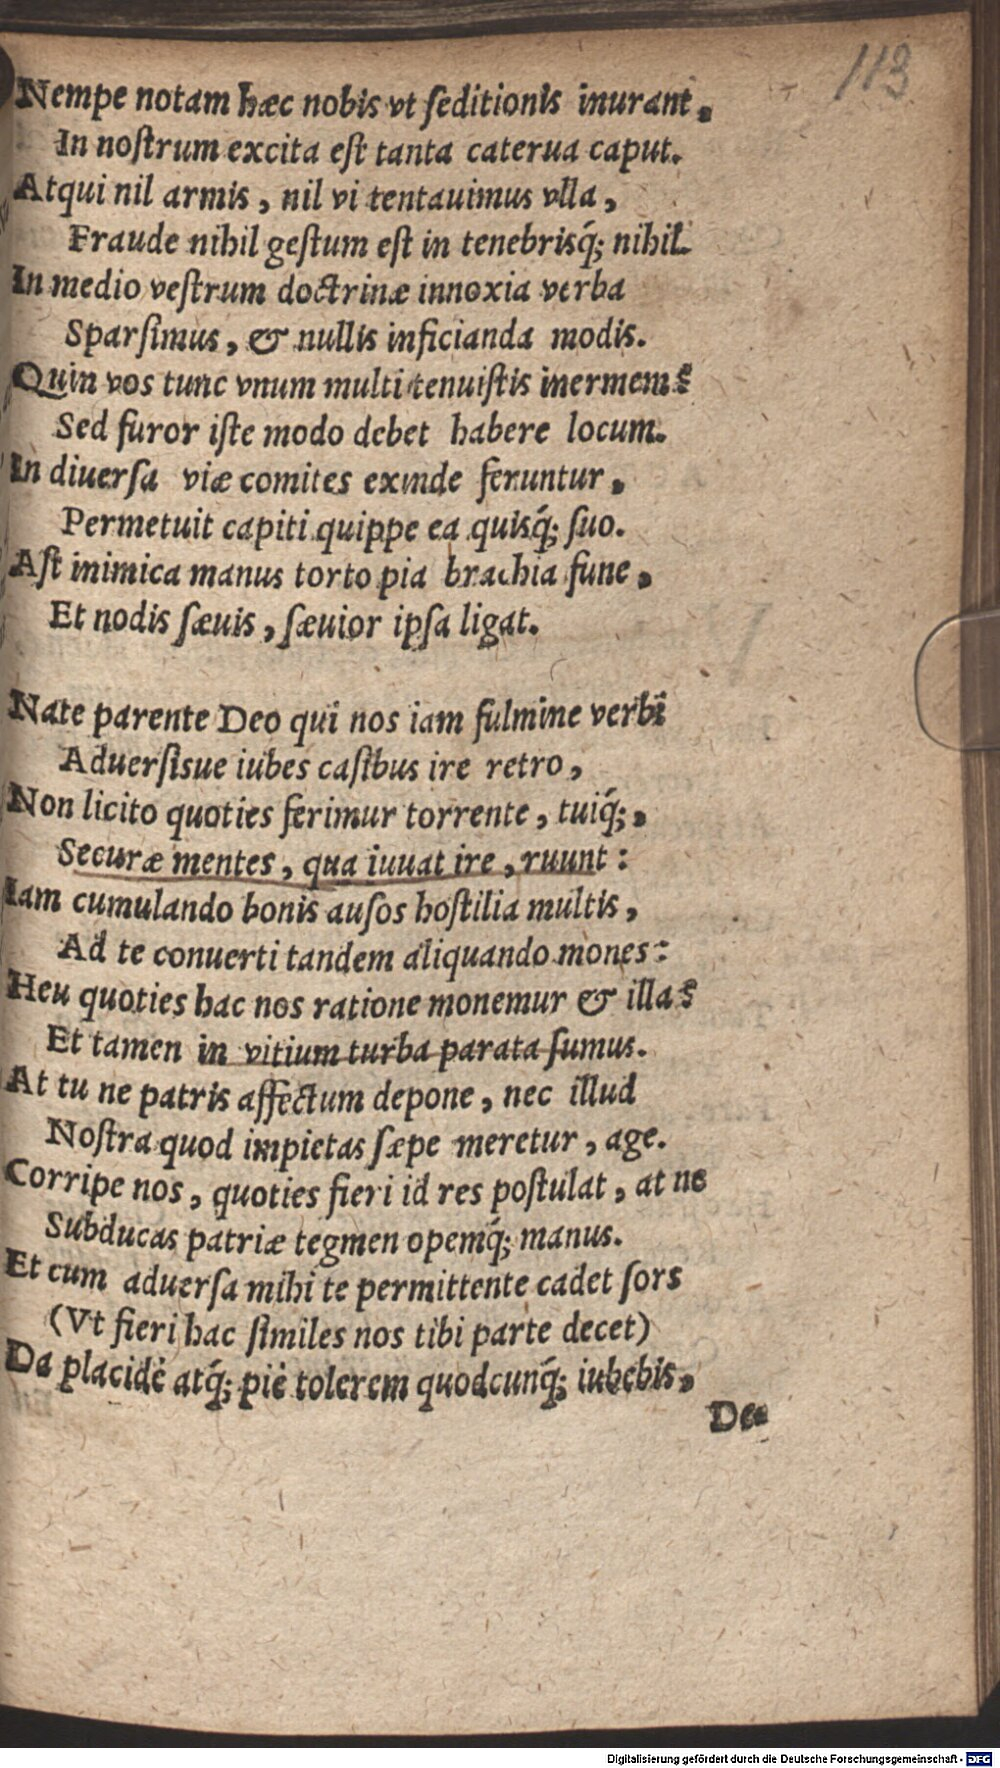 113
Nempe notam hæc nobis vt ſeditionis inurant,
In noſtrum excita eſt tanta caterua caput.
Atqui nil armis, nil vi tentauimus vlla,
Fraude nihil geſtum eſt in tenebrisq́; nihil.
In medio veſtrum doctrinæ innoxia verba
Sparſimus, & nullis inficianda modis.
Quin vos tunc vnum multi tenuiſtis inermem?
Sed furor iſte modo debet habere locum.
In diuerſa viæ comites exinde feruntur,
Permetuit capiti quippe ea quisq́; ſuo.
Aſt inimica manus torto pia brachia fune,
Et nodis ſæuis, ſæuior ipſa ligat.

Nate parente Deo qui nos iam fulmine verbi
Aduerſisue iubes caſibus ire retro,
Non licito quoties ferimur torrente, tuiq́;,
Securæ mentes, qua iuuat ire, ruunt:
Iam cumulando bonis auſos hoſtilia multis,
Ad te conuerti tandem aliquando mones:
Heu quoties hac nos ratione monemur & illa?
Et tamen in vitium turba parata ſumus.
At tu ne patris affectum depone, nec illud
Noſtra quod impietas ſæpe meretur, age.
Corripe nos, quoties fieri id res poſtulat, at ne
Subducas patriæ tegmen opemq́; manus.
Et cum aduerſa mihi te permittente cadet ſors
(Vt fieri hac ſimiles nos tibi parte decet)
Da placidè atq́; piè tolerem quodcunq́; iubebis,
De
Digitalisierung gefördert durch die Deutsche Forschungsgemeinschaft - DFG